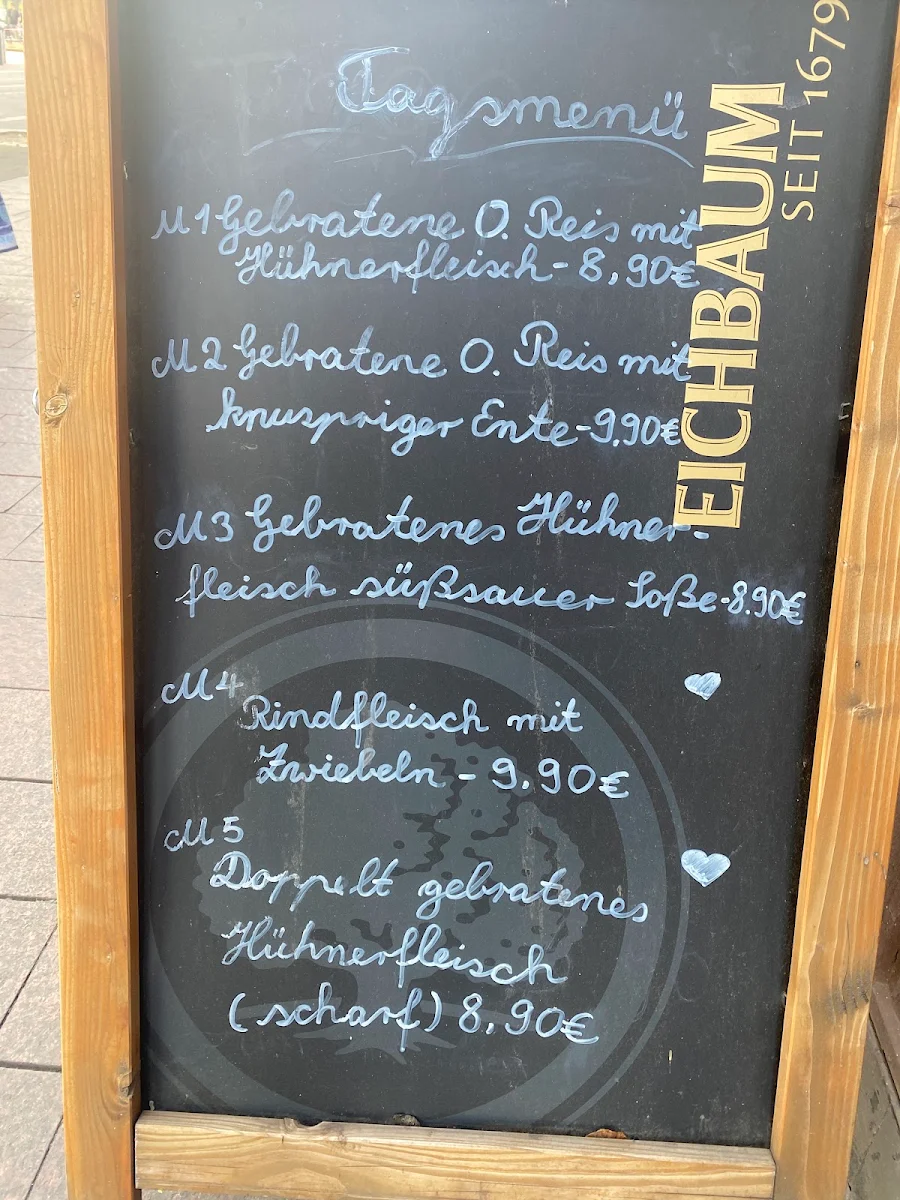 Tagsmenü
M1 Gebratene O. Reis mit
Hühnerfleisch - 8,90€
M2 Gebratene O. Reis mit
knuspriger Ente - 9,90€
M3 Gebratenes Hühner-
fleisch süßsauer Soße - 8.90€
M4
Rindfleisch mit
Zwiebeln - 9.90€
M5
Doppelt gebratenes
Hühnerfleisch
(scharf) 8,90€
EICHBAUM
SEIT 1679